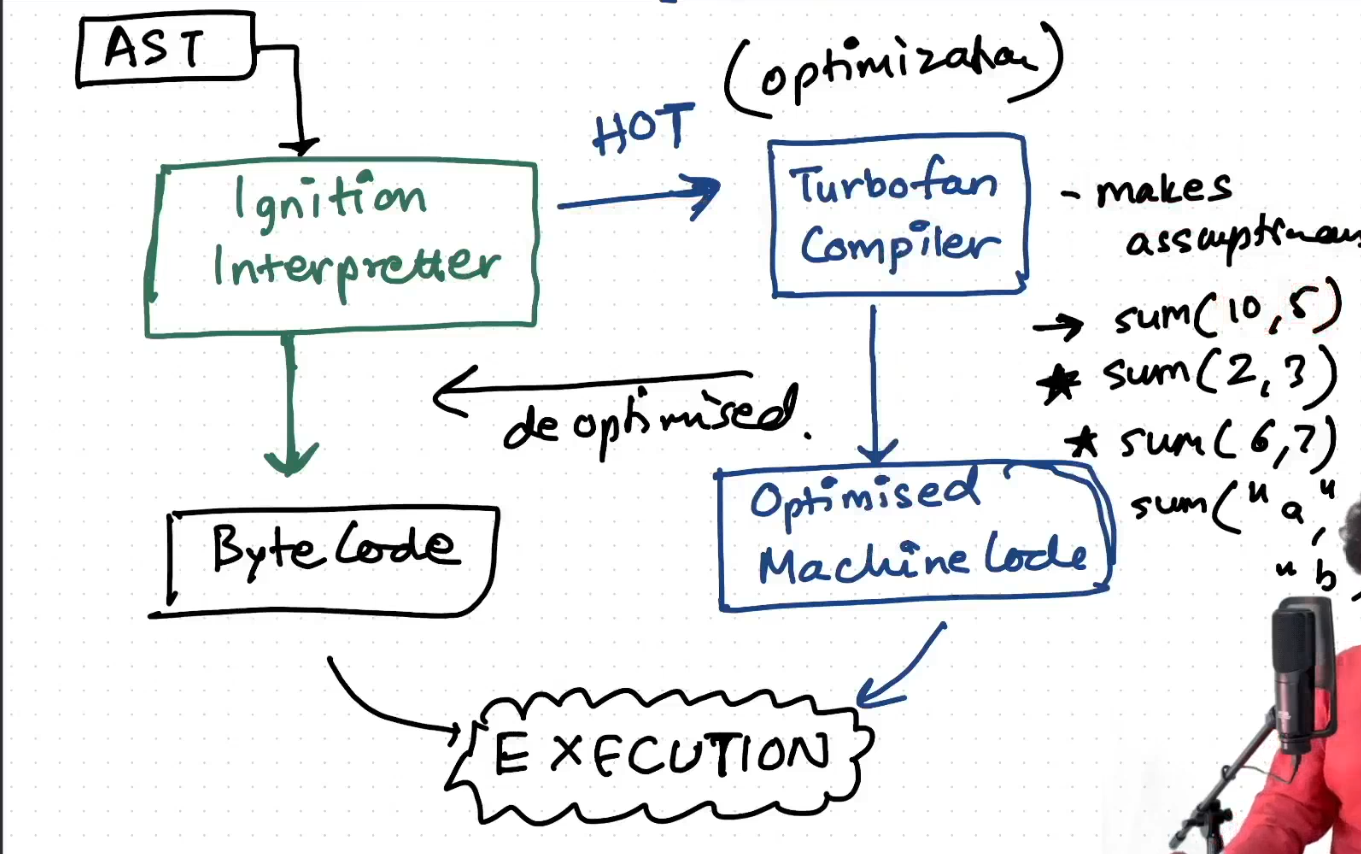 AST
(optimization)
HOT
Ignition
Interpretter
Turbofan
Compiler
- makes
assumptions
→ sum(10,5)
★ sum(2,3)
★ sum(6,7)
sum("a",
"b
deoptimised.
Byte Code
Optimised
Machine Code
EXECUTION